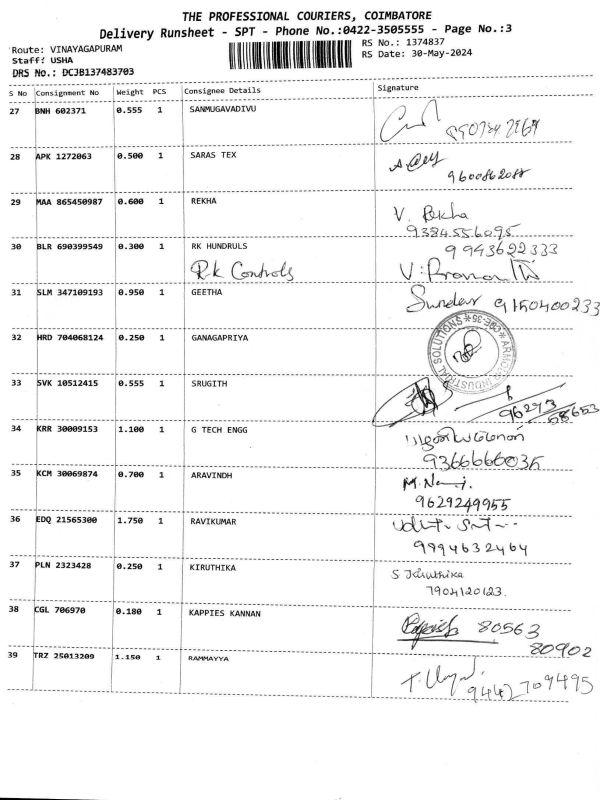 THE PROFESSIONAL COURIERS, COIMBATORE
Delivery Runsheet - SPT - Phone No.:0422-3505555 - Page No.:3
Route: VINAYAGAPURAM
Staff: USHA
DRS No.: DCJB137483703
RS No.: 1374837
RS Date: 30-May-2024
S No Consignment No Weight PCS Consignee Details Signature
27 BNH 602371 0.555 1 SANMUGAVADIVU
28 APK 1272063 0.500 1 SARAS TEX
9600862088
29 MAA 865450987 0.600 1 REKHA
V. Rekha
9384556095
30 BLR 690399549 0.300 1 RK HUNDRULS
9943622333
Rk Controls
31 SLM 347109193 0.950 1 GEETHA
Sundar 9150400233
32 HRD 704068124 0.250 1 GANAGAPRIYA
INDUSTRIAL SOLUTIONS * CBE-35 *
33 SVK 10512415 0.555 1 SRUGITH
96293
58653
34 KRR 30009153 1.100 1 G TECH ENGG
9366666035
35 KCM 30069874 0.700 1 ARAVINDH
9629249955
36 EDQ 21565300 1.750 1 RAVIKUMAR
9994632464
37 PLN 2323428 0.250 1 KIRUTHIKA
S Kiruthika
7904120123.
38 CGL 706970 0.180 1 KAPPIES KANNAN
80563
80902
39 TRZ 25013209 1.150 1 RAMMAYYA
9442709495